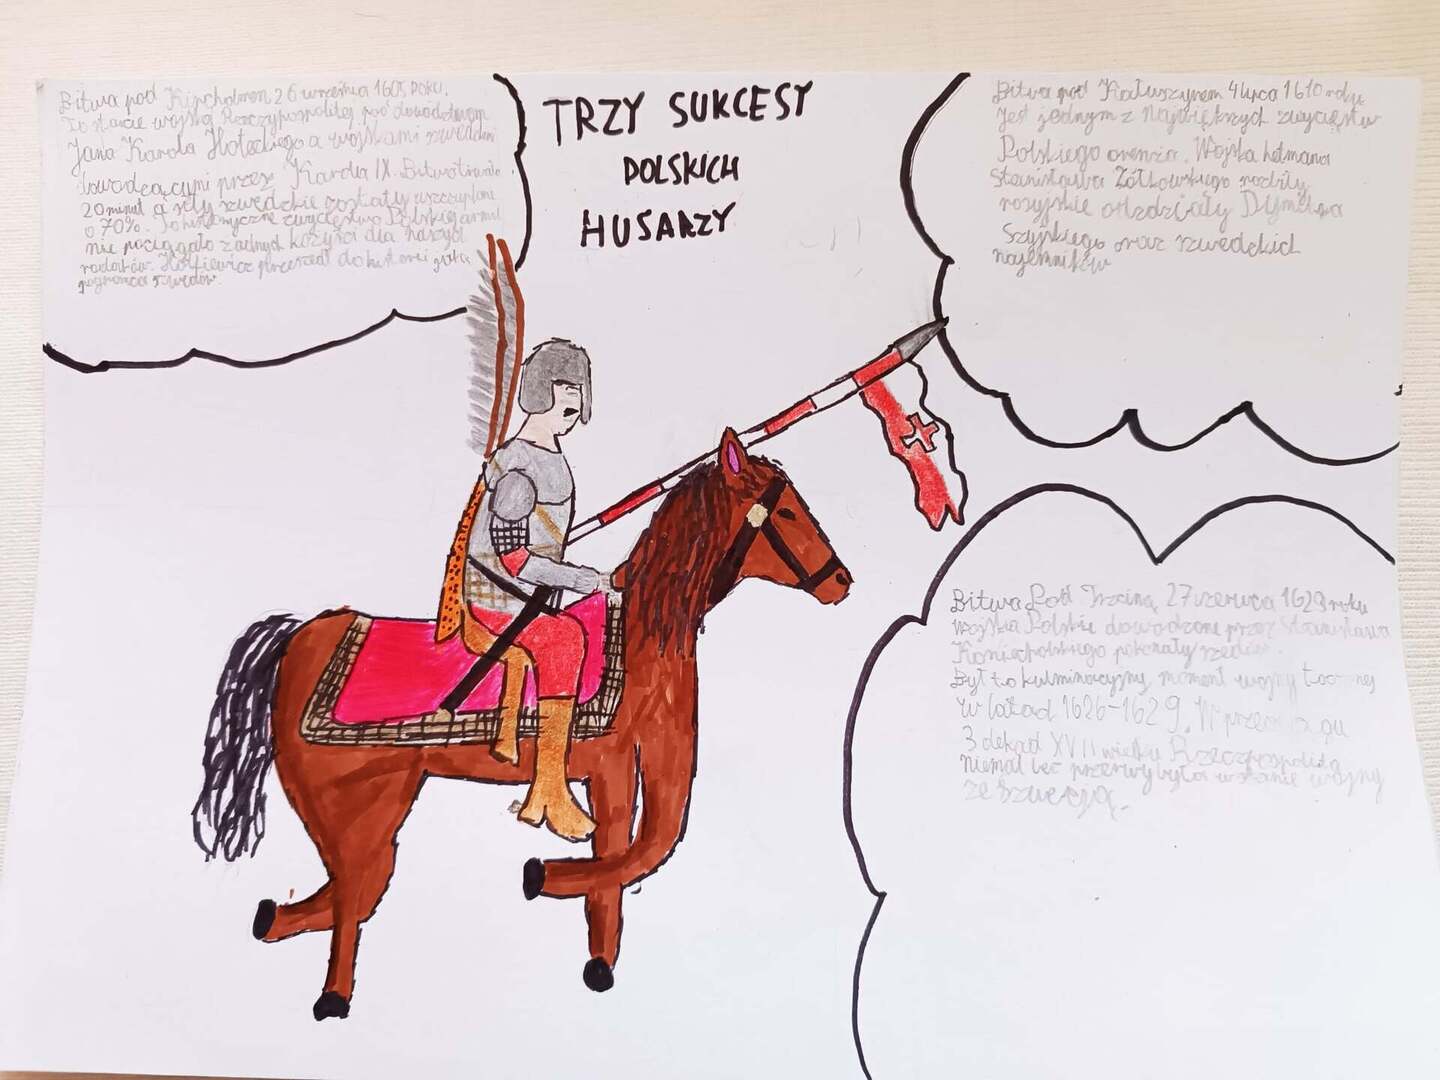 TRZY SUKCESY
POLSKICH
HUSARZY
Bitwa pod Kircholmem 26 września 1605 roku.
To starcie wojsk Rzeczypospolitej pod dowództwem
Jana Karola a wojskami szwedzkimi
dowodzącymi przez Karola IX. Bitwa trwała
20 minut a siły szwedzkie zostały uszczuplone
o 70%. To historyczne zwycięstwo Polskiej armii
nie pociągało żadnych korzyści dla naszych
rodaków. przeszedł do historii jako
pogromca szwedów.
Bitwa pod Kłuszynem 4 lipca 1610 roku
jest jednym z największych zwycięstw
Polskiego oręża. Wojska hetmana
Stanisława Żółkiewskiego rozbiły
rosyjskie oddziały Dymitra
Szujskiego oraz szwedzkich
najemników
Bitwa Pod Trzcianą 27 czerwca 1629 roku
Wojska Polskie dowodzone przez Stanisława
Koniecpolskiego pokonały
Był to kulminacyjny moment wojny toczonej
w latach 1626-1629. W przeciągu
3 dekad XVII wieku Rzeczpospolita
niemal bez przerwy była w stanie wojny
ze Szwecją.